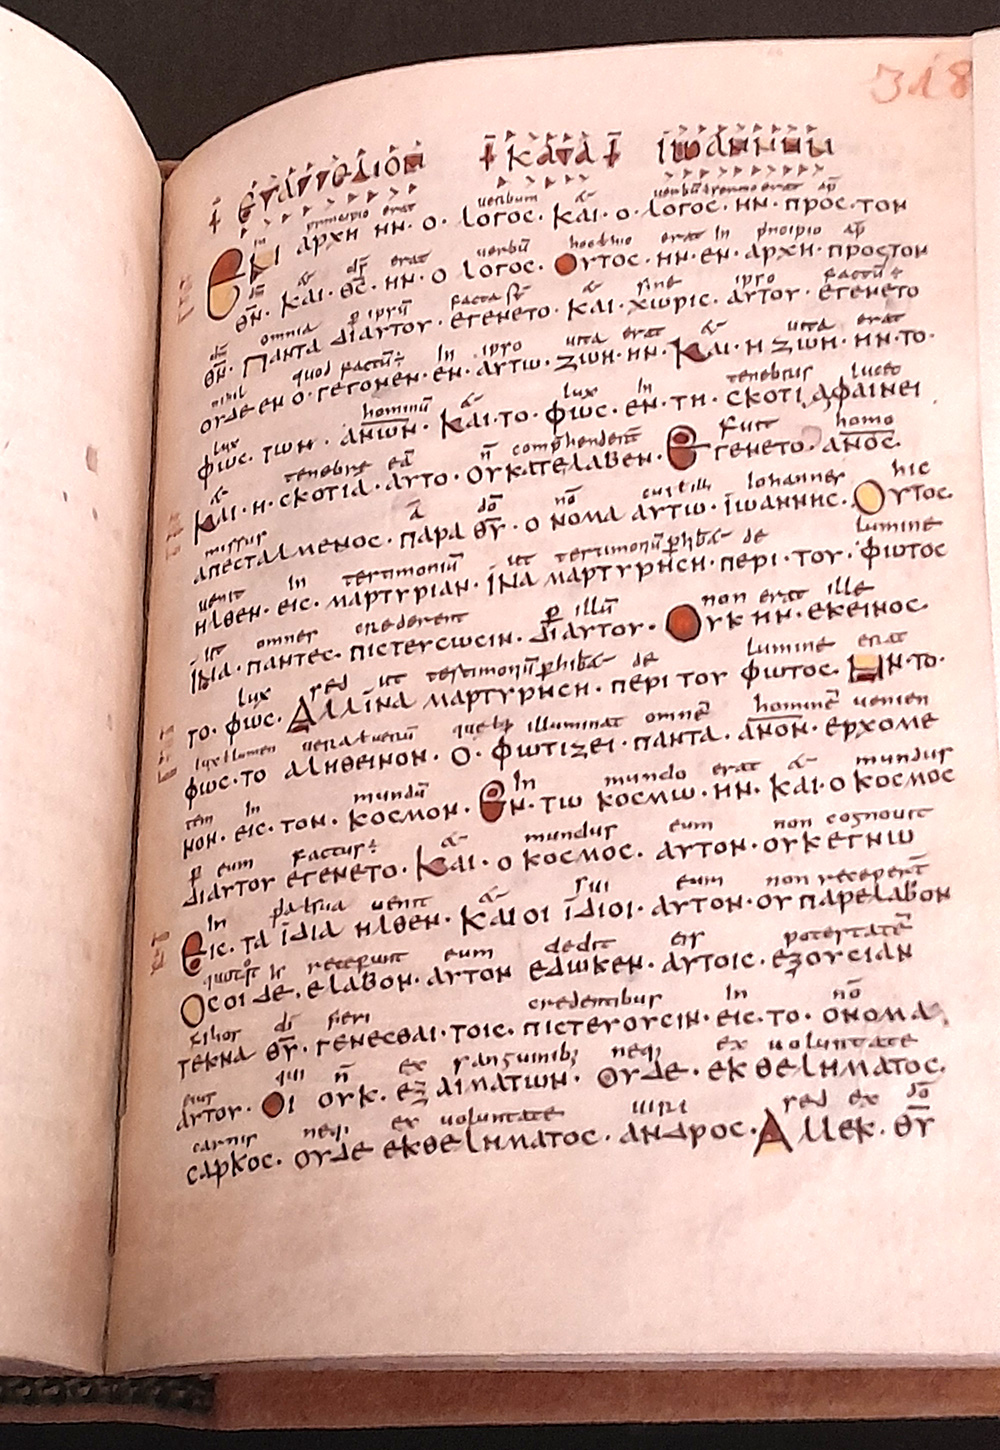 318
ΕΥΑΓΓΕΛΙΟΝ ΚΑΤΑ ΙΩΑΝΝΗΝ
In principio erat uerbum & uerbū erat ap̄
ΕΝ ΑΡΧΗ ΗΝ· Ο· ΛΟΓΟC· ΚΑΙ· Ο· ΛΟΓΟC· ΗΝ· ΠΡΟC· ΤΟΝ
dm̄ & dr̄ erat uerbū hoc erat In principio ap̄
Θ̄Ν̄· ΚΑΙ· Θ̄C̄· ΗΝ· Ο ΛΟΓΟC· ΟΥΤΟC· ΗΝ· ΕΝ· ΑΡΧΗ· ΠΡΟCΤΟΝ
dm̄ omnia p̱ ipsū facta st̄ & sine ipso factū ÷
Θ̄Ν̄· ΠΑΝΤΑ ΔΙΑΥΤΟΥ· ΕΓΕΝΕΤΟ· ΚΑΙ· ΧΩΡΙC· ΑΥΤΟΥ· ΕΓΕΝΕΤΟ
nihil quod factū ÷ In ipso uita erat & uita erat
ΟΥΔΕ ΕΝ Ο· ΓΕΓΟΝΕΝ· ΕΝ· ΑΥΤΩ· ΖΩΗ· ΗΝ· ΚΑΙ· Η ΖΩΗ· ΗΝ· ΤΟ·
lux hominū & lux In tenebris lucet
ΦΩC· ΤΩΝ· ΑΝ̄ΩΝ̄· ΚΑΙ· ΤΟ· ΦΩC· ΕΝ· ΤΗ· CΚΟΤΙΑ ΦΑΙΝΕΙ
& tenebre eā n̄ comp̱hendert̄ Fuit homo
ΚΑΙ· Η· CΚΟΤΙΑ· ΑΥΤΟ· ΟΥΚΑΤΕΛΑΒΕΝ· ΕΓΕΝΕΤΟ· ΑΝ̄ΟC̄·
missus a dō nō est illi Iohannes hic
ΑΠΕCΤΑΛΜΕΝΟC· ΠΑΡΑ Θ̄Ῡ· Ο ΝΟΜΑ ΑΥΤΩ· ΪΩΑΝΝΗC· ΟΥΤΟC·
uenit In testimoniū ut testimoniū p̱hibet de lumine
ΗΛΘΕΝ· ΕΙC· ΜΑΡΤΥΡΙΑΝ· ΪΝΑ ΜΑΡΤΥΡΗCΗ· ΠΕΡΙ· ΤΟΥ· ΦΩΤΟC
ut omnes crederent p̱ illū non erat ille
ΪΝΑ· ΠΑΝΤΕC· ΠΙCΤΕΥCΩCΙΝ· ΔΙΑΥΤΟΥ· ΟΥΚ ΗΝ· ΕΚΕΙΝΟC·
lux sed ut testimoniū p̱hibet de lumine erat
ΤΟ· ΦΩC· ΑΛΛΪΝΑ ΜΑΡΤΥΡΗCΗ· ΠΕΡΙ ΤΟΥ ΦΩΤΟC· ΗΝ· ΤΟ·
omnē hominē uenien
ΦΩC· ΤΟ ΑΛΗΘΕΙΝΟΝ· Ο· ΦΩΤΙΖΕΙ· ΠΑΝΤΑ· ΑΝ̄ΟΝ̄· ΕΡΧΟΜΕ
tem In mundū In mundo erat & mundus
ΝΟΝ· ΕΙC· ΤΟΝ· ΚΟCΜΟΝ· ΕΝ· ΤΩ ΚΟCΜΩ· ΗΝ· ΚΑΙ· Ο ΚΟCΜΟC
p̱ eum factus ÷ & mundus eum non cognouit
ΔΙΑΥΤΟΥ ΕΓΕΝΕΤΟ· ΚΑΙ· Ο ΚΟCΜΟC· ΑΥΤΟΝ· ΟΥΚ ΕΓΝΩ
In patria uenit & sui eum non recepert̄
ΕΙC· ΤΑ ΪΔΙΑ ΗΛΘΕΝ· ΚΑΙ ΟΙ ΪΔΙΟΙ· ΑΥΤΟΝ· ΟΥ ΠΑΡΕΛΑΒΟΝ
receperunt eum dedit eis potestatē
ΟCΟΙ ΔΕ· ΕΛΑΒΟΝ· ΑΥΤΟΝ ΕΔΩΚΕΝ· ΑΥΤΟΙC· ΕΞΟΥCΙΑΝ
filios di fieri credentibus In nō
ΤΕΚΝΑ Θ̄Ῡ· ΓΕΝΕCΘΑΙ· ΤΟΙC· ΠΙCΤΕΥΟΥCΙΝ· ΕΙC· ΤΟ· ΟΝΟΜΑ
eius qui n̄ ex sanguinib; neq; ex uoluntate
ΑΥΤΟΥ· ΟΙ ΟΥΚ· ΕΞ ΑΙΜΑΤΩΝ· ΟΥΔΕ· ΕΚ ΘΕΛΗΜΑΤΟC·
carnis neq; ex uoluntate uiri sed ex dō
CΑΡΚΟC· ΟΥΔΕ ΕΚΘΕΛΗΜΑΤΟC· ΑΝΔΡΟC· ΑΛΛΕΚ· Θ̄Ῡ